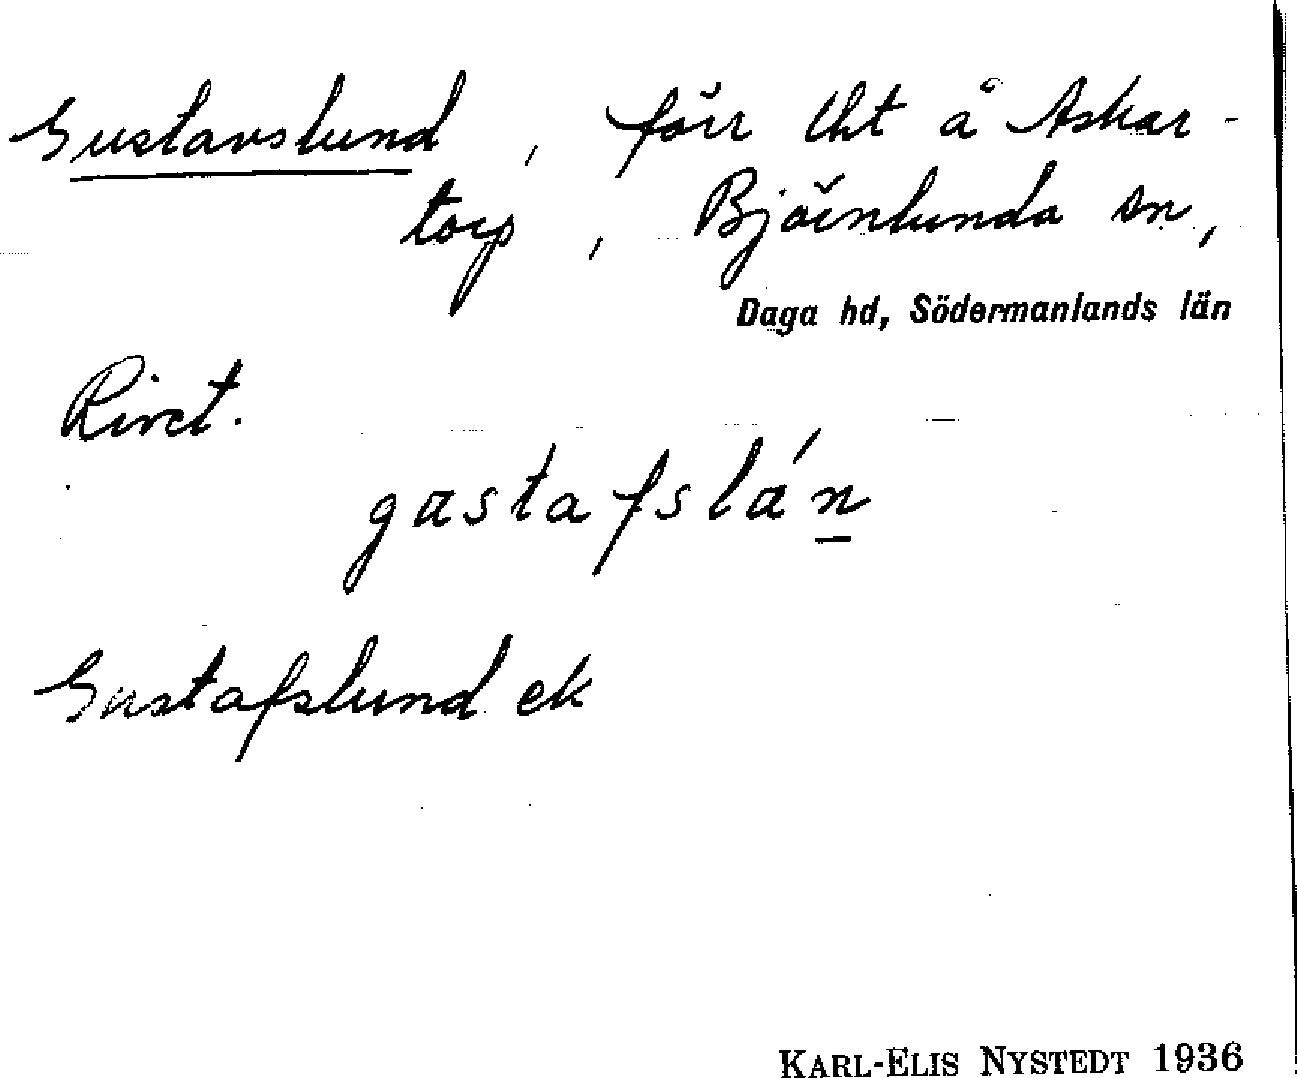 Gustavslund, förr lht å Askar-
torp, Björnlunda sn,
Daga hd, Södermanlands län
Rivet.
gastafslá́n
Gustafslund ek
KARL-ELIS NYSTEDT 1936